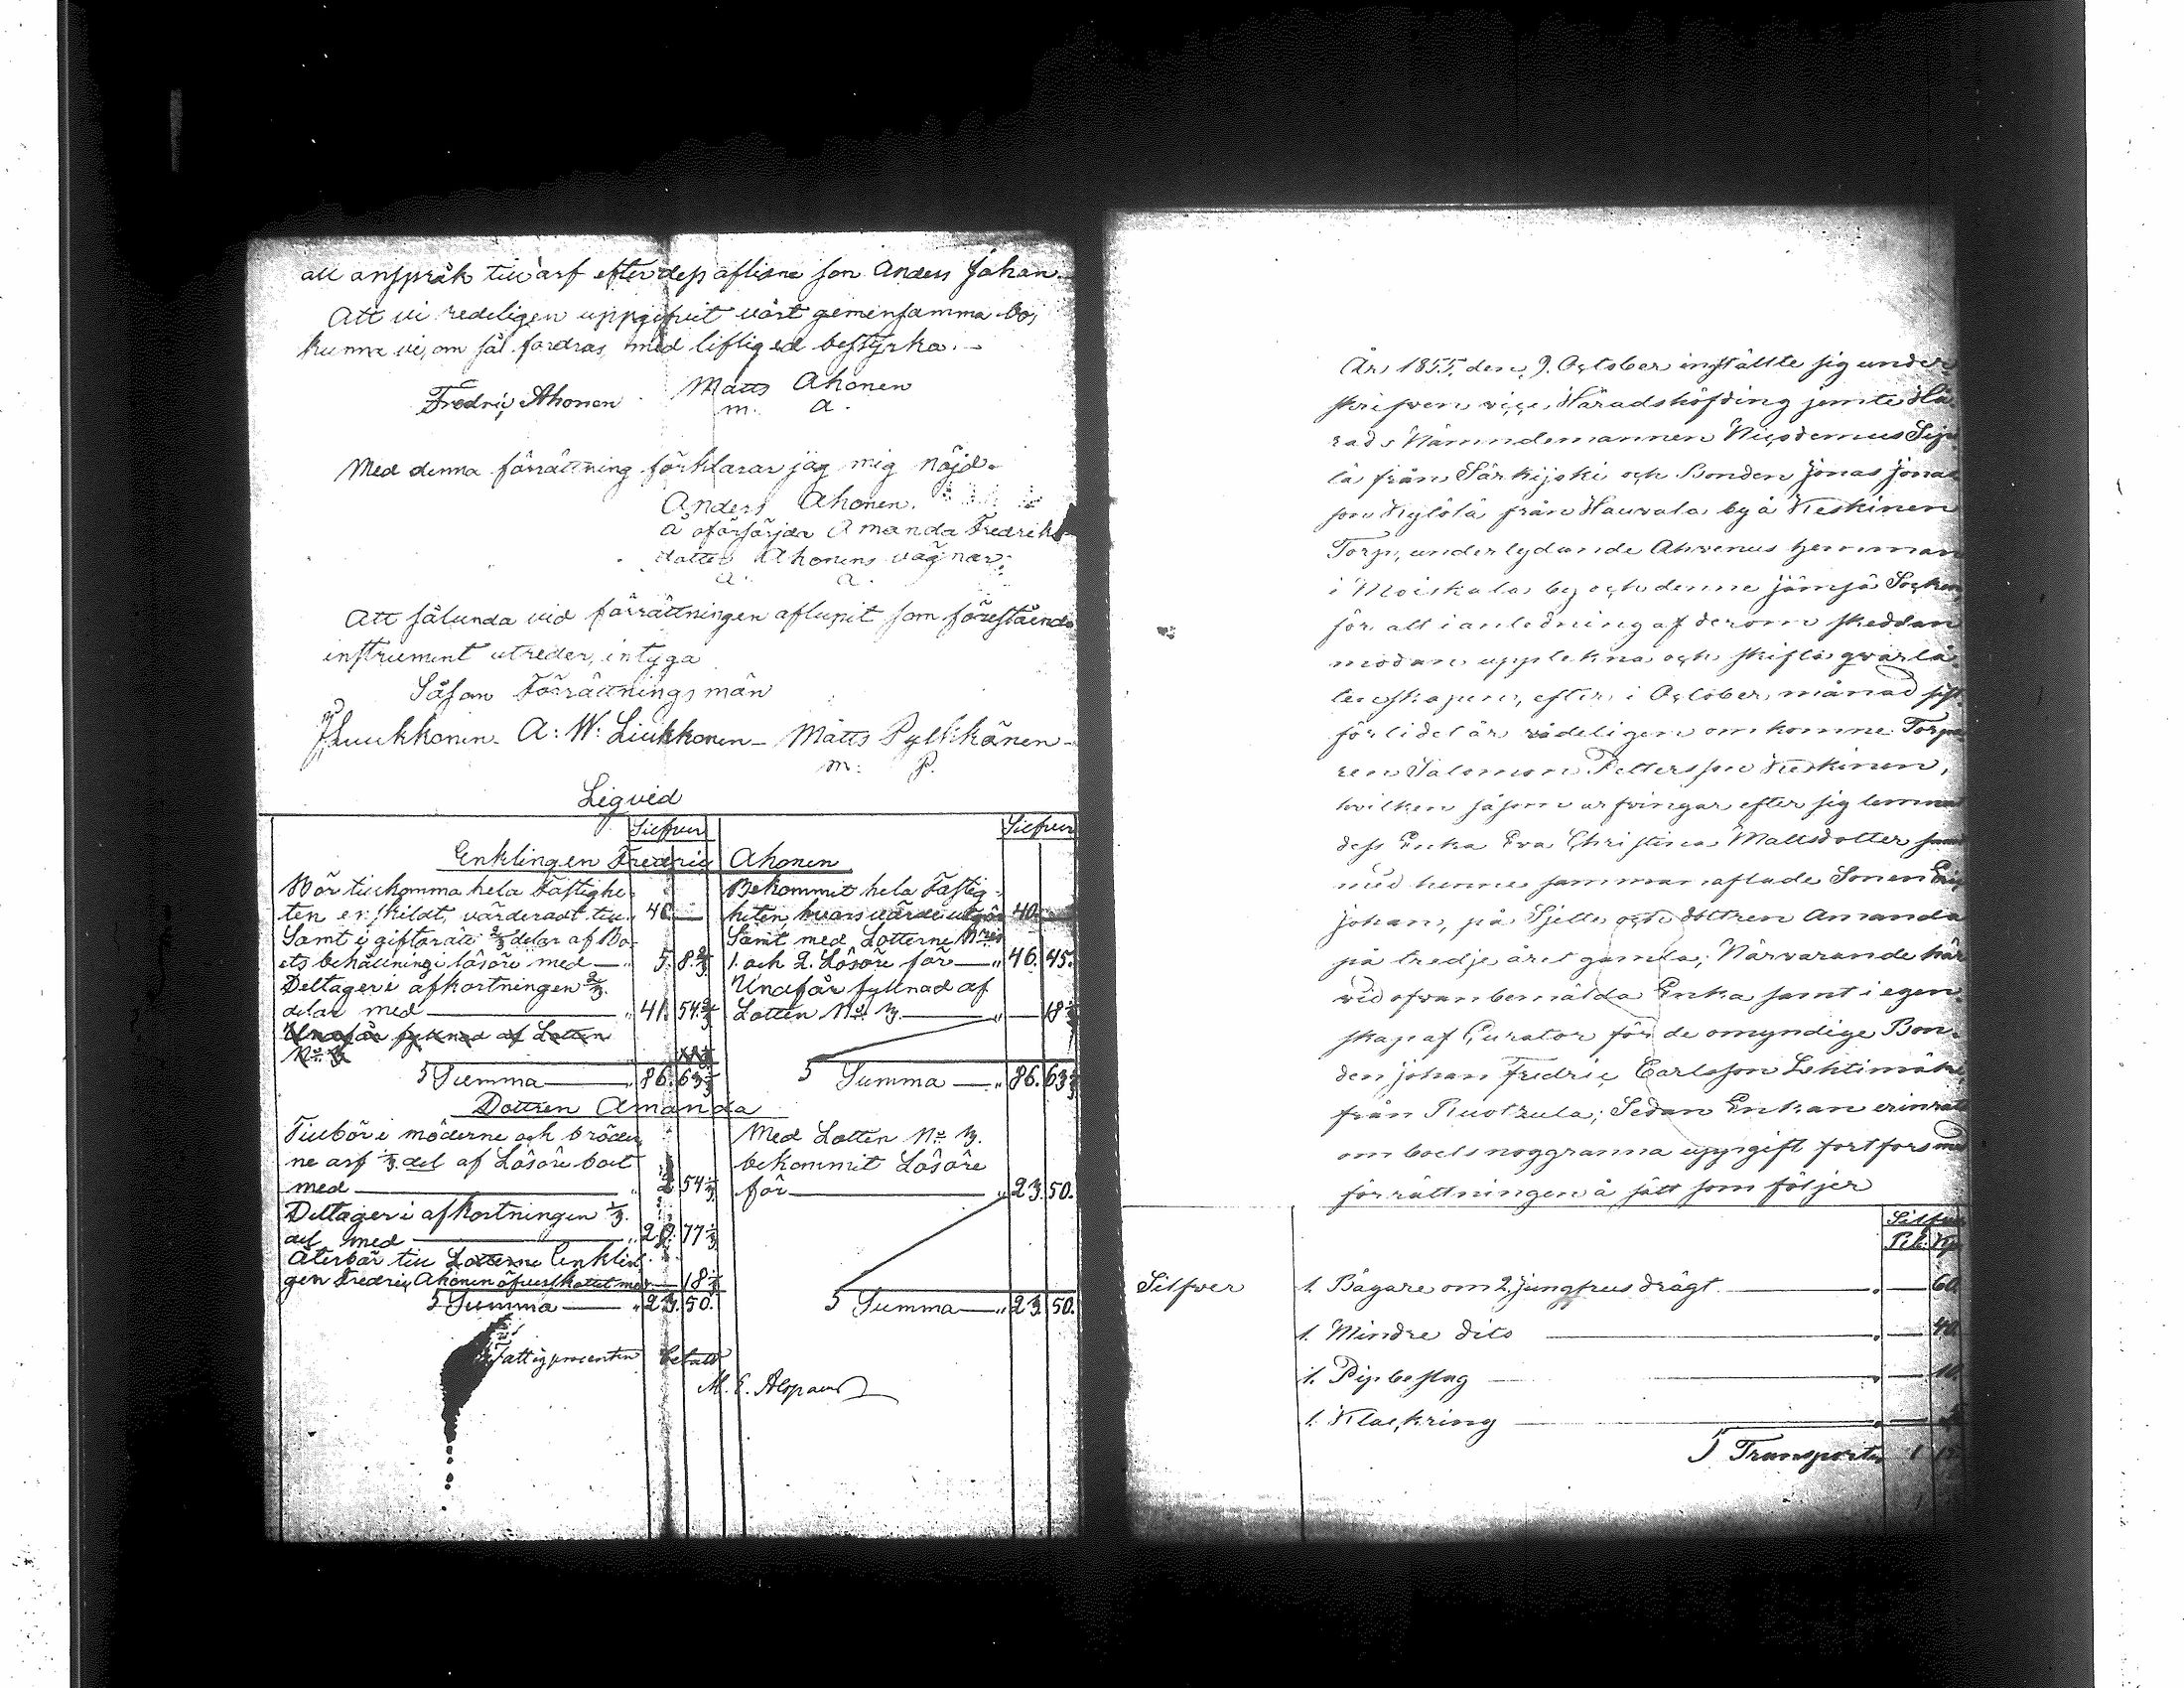 all anspråk till arf efter dess aflidne son Anders Johan.
Att vi redeligen uppgifvit vårt gemensamma bo,
kunna vi, om så fordras, med liflig ed bestyrka.
Fredric Ahonen Matts Ahonen
m. a.
Med denna förrättning förklarar jag mig nöjd.
Anders Ahonen.
å oförsörjda Amanda Fredriks
dotter Ahonens vägnar:
a. a.
Att sålunda vid förrättningen aflupit som förestående
instrument utreder, intyga
Såsom Förrättningsmän
Luukkonen. A: W: Liukkonen. Matts Pylkkänen
m: P.
Liqvid
Silfver Silfver
Enklingen Fredric Ahonen
Bör tillkomma hela Fastighe-
ten enskildt, värderadt till 40 —
Samt i giftorätt 2/3 delar af Bo-
ets behållning i lösöre med — 5. 8 2/3
Deltager i afkortningen 2/3
delar med — 41. 54 2/3
Undfår fyllnad af Lotten
No 3
Summa — 86. 63 1/3
Bekommit hela Fastig-
heten hvars värde utgör 40. —
Samt med Lotterne Nris
1. och 2. Lösöre för — 46. 45.
Undfår fyllnad af
Lotten No 3. — 18 1/3
Summa — 86. 63 1/3
Dottren Amanda
Tillbör i möderne och bröder
ne arf 1/3 del af Lösöre boet
med — 2 54 1/3
Deltager i afkortningen 1/3.
del med — 20. 77 1/3
Återbär till Lotterne Enklin
gen Fredric Ahonen öfverskottet med — 18 1/3
Summa — 23. 50.
Med Lotten No 3.
bekommit Lösöre
för — 23. 50.
Summa — 23. 50.
Fattigprocenten betald
M. E. Alopaeus
År 1855. den 9. October inställte sig under
skrifven vice Häradshöfding jemte Hä
rads Nämndemannen Nicodemus Sip
lä från Särkijoki och Bonden Jonas Jonas
son Kylölä från Hauvala by å Keskinen
Torp, underlydande Ahvenus hemman
i Moiskala by och denne Jämsä Socken,
för att i anledning af derom skeddan
modan uppte­kna och skifta qvarlå
tenskapen, efter i October månad sist
förlidet år vådeligen omkomne Torpa
ren Salomon Pettersson Keskinen,
hvilken såsom arfvingar efter sig lemnat
dess Enka Eva Christina Mattsdotter samt
med henne samman aflade Sonen Eric
Johan, på Sjette och dottren Amanda
på tredje året gamla; Närvarande här
vid ofvanbemälda Enka samt i egen-
skap af Curator för de omyndige Bon-
den Johan Fredric Carlsson Lehtimäki,
från Ruotzula; Sedan Enkan erinrats
om boets noggranna uppgift fortfors med
förrättningen å sätt som följer
Silfver
Rub. Kop
Silfver 1. Bägare om 2. jungfrus drägt — 60.
1. Mindre dito — 40.
1. Pipbeslag — 10.
1. Klackring —
Transport 1